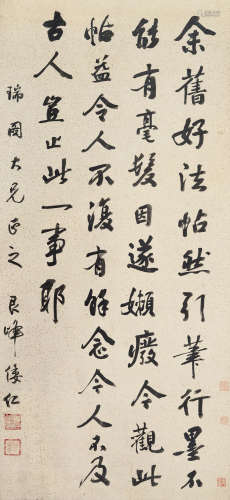 余舊好法帖然引筆行墨不
能有毫髮因遂嬾癈今觀此
帖益令人不復有餘念今人不及
古人豈止此一事耶
瑞圃大兄正之 艮峰倭仁